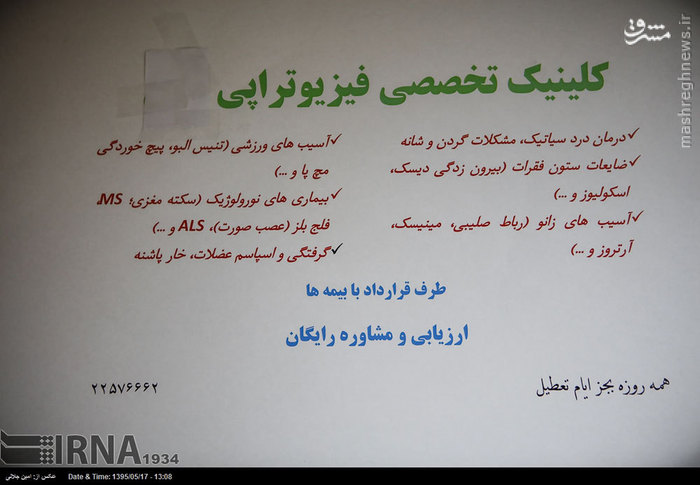 مشرق
mashreghnews.ir
کلینیک تخصصی فیزیوتراپی
✓درمان درد سیاتیک، مشکلات گردن و شانه
✓ضایعات ستون فقرات (بیرون زدگی دیسک،
اسکولیوز و ...)
✓آسیب های زانو (رباط صلیبی، مینیسک،
آرتروز و ...)
✓آسیب های ورزشی (تنیس البو، پیچ خوردگی
مچ پا و ...)
✓بیماری های نورولوژیک (سکته مغزی؛ MS،
فلج بلز (عصب صورت)، ALS و ...)
✓گرفتگی و اسپاسم عضلات، خار پاشنه
طرف قرارداد با بیمه ها
ارزیابی و مشاوره رایگان
همه روزه بجز ایام تعطیل
۲۲۵۷۶۶۶۲
IRNA 1934
عکس از: امین جلالی Date & Time: 1395/05/17 - 13:08